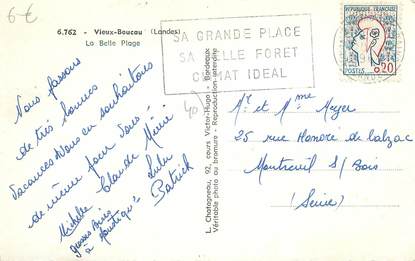 6€
6.762 - Vieux-Boucau (Landes)
La Belle Plage
SA GRANDE PLACE
SA BELLE FORET
CLIMAT IDEAL
REPUBLIQUE FRANCAISE
POSTES
0.20
Nous passons
de très bonnes
vacances. Nous en souhaitons
de même pour vous.
Michelle Claude Mimi
Lulu
Patrick
grosses bises
à
L. Chatagneau, 92, cours Victor-Hugo - Bordeaux
Véritable photo au bromure - Reproduction interdite
Mr et Mme Meyer
25 rue Honoré de Balzac
Montreuil s/ Bois
(Seine)